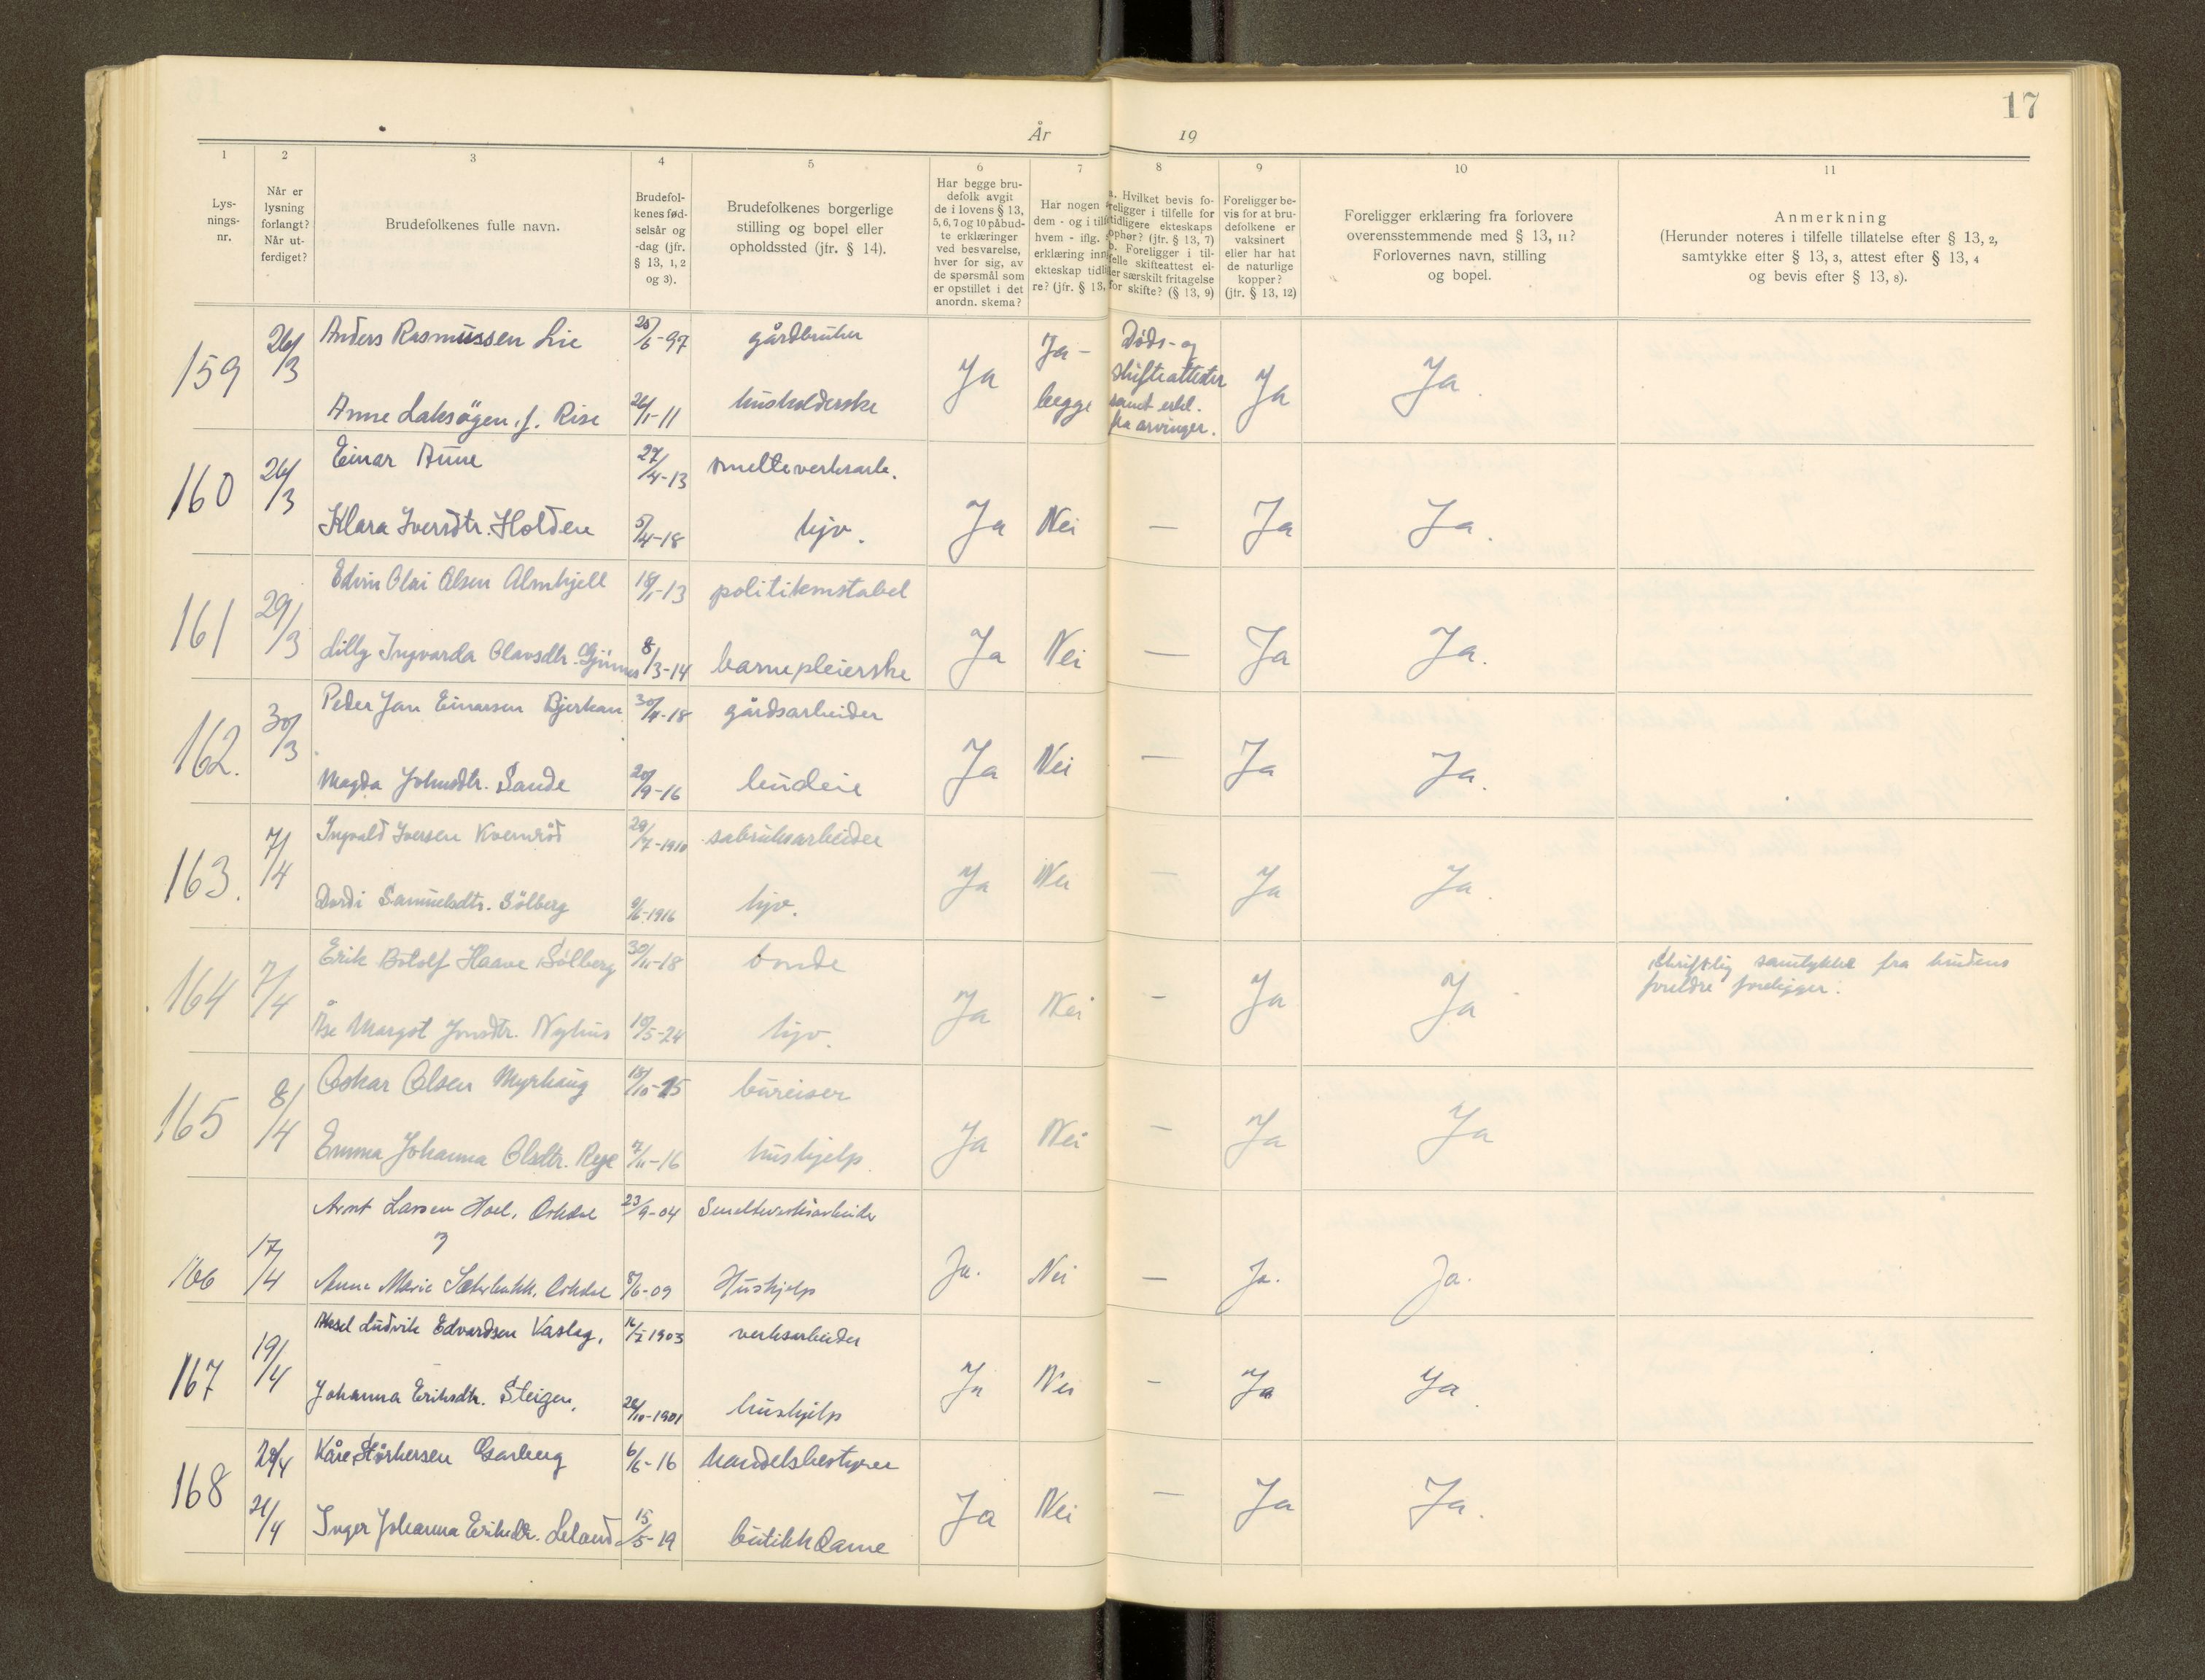 17
År 19
1 2 3 4 5 6 7 8 9 10 11
Lys-
nings-
nr.
Når er
lysning
forlangt?
Når ut-
ferdiget?
Brudefolkenes fulle navn.
Brudefol-
kenes fød-
selsår og
-dag (jfr.
§ 13, 1, 2
og 3).
Brudefolkenes borgerlige
stilling og bopel eller
opholdssted (jfr. § 14).
Har begge bru-
defolk avgit
de i lovens § 13,
5, 6, 7 og 10 påbud-
te erklæringer
ved besvarelse,
hver for sig, av
de spørsmål som
er opstillet i det
anordn. skema?
Har nogen
dem - og i tilf
hvem - iflg.
erklæring inn
ekteskap tidli
re? (jfr. § 13,
a. Hvilket bevis fo-
religger i tilfelle for
tidligere ekteskaps
ophør? (jfr. § 13, 7)
b. Foreligger i til-
felle skifteattest el-
ler særskilt fritagelse
for skifte? (§ 13, 9)
Foreligger be-
vis for at bru-
defolkene er
vaksinert
eller har hat
de naturlige
kopper?
(jfr. § 13, 12)
Foreligger erklæring fra forlovere
overensstemmende med § 13, 11?
Forlovernes navn, stilling
og bopel.
Anmerkning
(Herunder noteres i tilfelle tillatelse efter § 13, 2,
samtykke efter § 13, 3, attest efter § 13, 4
og bevis efter § 13, 8).
159 26/3 Anders Rasmussen Lie 25/6-97 gårdbruker Ja Ja - begge Døds- og
skifteattester
samt erkl.
fra arvinger. Ja Ja.
Anne Laksøgen, f. Rise 26/1-11 husholderske
160 26/3 Einar Aune 27/4-13 smelteverksarb.
Klara Iversdtr. Holden 5/4-18 hjv. Ja Nei — Ja Ja.
161 29/3 Edvin Olai Olsen Almhjell 18/1-13 politikonstabel
Lilly Ingvarda Olavsdtr. 8/3-14 barnepleierske Ja Nei — Ja Ja.
162. 30/3 Peder Jan Einarsen Bjerkan 30/4-18 gårdsarbeider
Magda Johnsdtr. Sande 20/9-16 budeie Ja Nei — Ja Ja.
163. 7/4 Ingvald Iversen Kvernrød 29/7-1910 sabruksarbeider
Dordi Samuelsdtr. Sølberg 9/6-1916 hjv. Ja Nei — Ja Ja.
164 7/4 Erik Botolf Haave Sølberg 30/11-18 bonde skriftlig samtykke fra brudens
foreldre foreligger.
Åse Margot Jonsdtr. Nyhus 10/5-24 hjv. Ja Nei - Ja Ja
165 8/4 Oskar Olsen Myrhaug 18/10-15 bureiser
Emma Johanna Olsdtr. Rye 7/11-16 hushjelp Ja Nei — Ja Ja
166 17/4 Arnt Larsen Hoel, Orkdal 23/9-04 Smelteverksarbeider
Anna Marie Sæterbakk, Orkdal 5/6-09 Hushjelp Ja. Nei — Ja. Ja.
167 19/4 Aksel Ludvik Edvardsen Vaslag, 16/2 1903 verksarbeider
Johanna Eriksdtr. Steigen, 26/10-1901 hushjelp Ja Nei - Ja Ja.
168 20/4 Kåre Størkersen Garberg 6/6-16 handelsbestyrer
21/4 Inger Johanna Eriksdtr. Leland 15/5-19 butikkdame Ja Nei — Ja Ja.